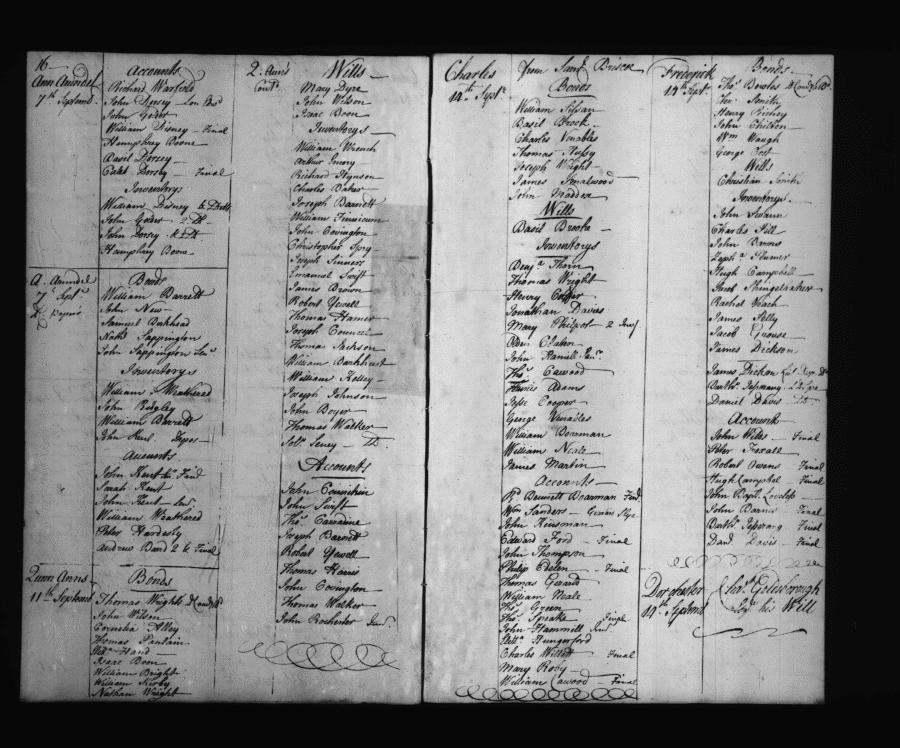 16
Ann Arundel
7th Septemr
Accounts
Richard Warfield
John Dorsey
John Gears
William Disney - Final
Humphrey Boone
Basil Dorsey
Caleb Dorsey - Final
Inventorys
William Disney & Debts
John Gears 2
John Dorsey
Humphrey Boone
A. Arundel
7 Septr
Bonds
William Barrett
John New
Samuel Burkhead
Nathl Sappington
John Sappington
Inventorys
William Weathered
John Ridgley
William Barrett
John
Accounts
John Kent
Sarah Kent
John Kent
William Weathered
Peter Hardesty
Andrew Bard 2 & Final
Queen Anns
11th Septemr
Bonds
Thomas Wright
John Wilson
Cornelia Alley
Thomas
Hand
Isaac Boon
William Bright
William Kirby
Nathan Wright
2. Ann's
Contd
Wills
Mary Dyre
John Wilson
Isaac Boon
Inventorys
William Wrench
Arthur Emory
Richard Hynson
Charles Baker
Joseph Barnett
William
John Covington
Christopher Spry
Joseph Sinners
Emanuel Swift
James Brown
Robert Yewell
Thomas Hamer
Joseph Councel
Thomas Jackson
William Barkhurst
William Kelley
Joseph Johnson
John Boyer
Thomas Walker
Solo. Seney
Accounts
John
John Swift
Thos Carradine
Joseph Barnett
Robert Yewell
Thomas Harris
John Covington
Thomas Walker
John Rochester
Charles
14th Septr
from Saml Briscoe
Bonds
William
Basil Brook
Charles Venables
Thomas Hussy
Joseph Wright
James Smalwood
John Maddox
Wills
Basil Brooke
Inventorys
Benja Thorn
Thomas Wright
Henry Cooper
Jonathan Davies
Mary Philpot 2 Invs
John Hamill Junr
Thos Cawood
Francis Adams
Jesse Cooper
George Venables
William Boarman
William Neale
James Martin
Accounts
Rd Bennett Boarman Final
Wm Sanders
John Kinsman
Edward Ford - Final
John Thompson
Philip Edelen - Final
Thomas Gerard
William Neale
Thos Green
Thos Speake Final
John Hammill
Hungerford
Charles Willett - Final
Mary Roby
William Cawood - Final
Frederick
14th Septr
Bonds
Thos Bowles
Smith
Henry Richey
John Chilton
Wm Waugh
George Best
Wills
Christian Smith
Inventorys
John Swann
Charles Hill
John Barns
Plumer
Hugh Campbell
Jacob
Rachel Veach
James Pelly
Jacob Crouse
James Dickson
James Dickson
Daniel Davis
Accounts
John Wilks - Final
Peter Troxall
Robert Owens Final
Hugh Campbel Final
John Bapt. Loveless
John Barnes Final
Final
Danl Davis - Final
Dorchester
14th Septemr
Chas Goldsborough
his Will